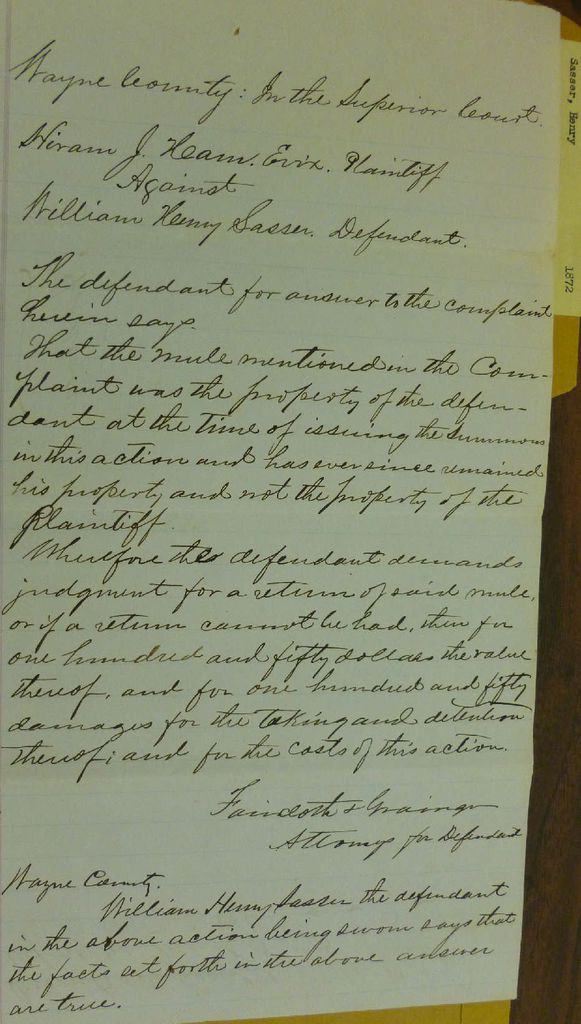 Wayne County: In the Superior Court.
Hiram J. Ham. Ex'r. Plaintiff
Against
William Henry Sasser. Defendant.
The defendant for answer to the complaint
herein says.
That the mule mentioned in the Com-
plaint was the property of the defen-
dant at the time of issuing the summons
in this action and has ever since remained
his property and not the property of the
Plaintiff.
Wherefore the defendant demands
judgment for a return of said mule,
or if a return cannot be had, then for
one hundred and fifty dollars the value
thereof, and for one hundred and fifty
damages for the taking and detention
thereof; and for the costs of this action.
Faircloth & Grainger
Attorneys for Defendant
Wayne County.
William Henry Sasser the defendant
in the above action being sworn says that
the facts set forth in the above answer
are true.
Sasser, Henry
1872